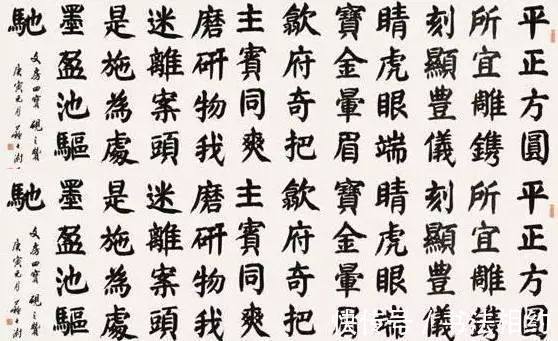 平正方圓
所宜雕鐫
刻顯豊儀
睛虎眼端
寶金暈眉
歙府奇把
主賓同爽
磨研物我
迷離案頭
是施為處
墨盈池驅
馳
文房四寶 硯之贊
庚寅元月 蘇士澍
平正方圓
所宜雕鐫
刻顯豊儀
睛虎眼端
寶金暈眉
歙府奇把
主賓同爽
磨研物我
迷離案頭
是施為處
墨盈池驅
馳
文房四寶 硯之贊
庚寅元月 蘇士澍